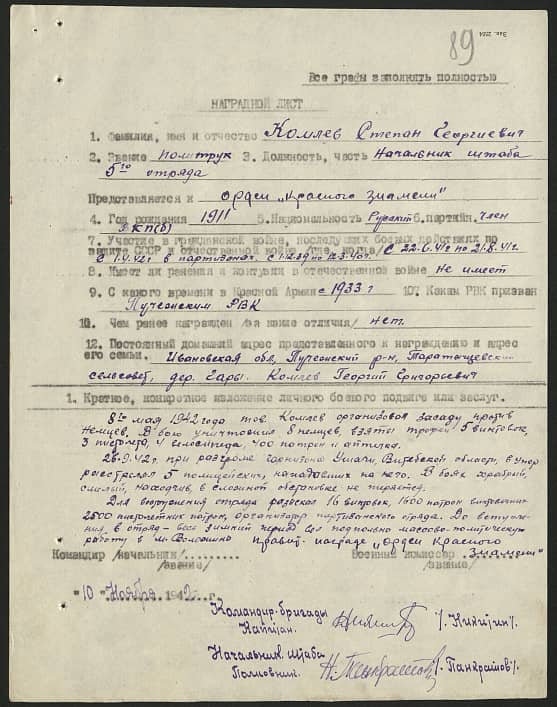 89
Зак. 2254
Все графы заполнять полностью
НАГРАДНОЙ ЛИСТ
1. Фамилия, имя и отчество Комлев Степан Георгиевич
2. Звание политрук 3. Должность, часть Начальник штаба
5го отряда
Представляется к Орден „Красного Знамени"
4. Год рождения 1911 5. Национальность Русский 6. партийн. член
ВКП(б)
7. Участие в гражданской войне, последующих боевых действиях по
защите СССР и отечественной войне /где, когда/ с 22.6.41г по 21.8.41г.
с 1.4.42г в партизанах. с 1.12.39 по 12.3.40г.
8. Имеет ли ранения и контузии в отечественной войне не имеет
9. С какого времени в Красной Армии с 1933 г 10. Каким РВК призван
Пучежским РВК
10. Чем ранее награжден /за какие отличия/ нет.
12. Постоянный домашний адрес представленного к награждению и адрес
его семьи. Ивановская обл, Пучежский р-н,
сельсовет, дер. Гары. Комлев Георгий Григорьевич
1. Краткое, конкретное изложение личного боевого подвига или заслуг.
8го мая 1942 года тов. Комлев организовал засаду против
немцев. В бою уничтожил 8 немцев, взяты трофеи 5 винтовок,
3 пистолета, 4 велосипеда, 400 патрон и аптечка.
28.9.42г. при разгроме гарнизона Ушачи, Витебской области, в упор
расстрелял 5 полицейских, нападавших на него. В боях храбрый,
смелый, находчив, в сложной обстановке не теряется.
Для вооружения отряда разыскал 16 винтовок, 1600 патрон винтовочн.
2500 пистолетных патрон, организатор партизанского отряда. До вступле-
ния в отряд весь зимний период вел подпольно массово-политическую
работу в м. награде „Орден Красного
Знамени"
Командир /начальник/ Военный комиссар
/звание/ /звание/
"10" Ноября 1942 г.
Командир бригады
Капитан. /. Никитин/.
Начальник Штаба
Полковник. /. Панкратов/.